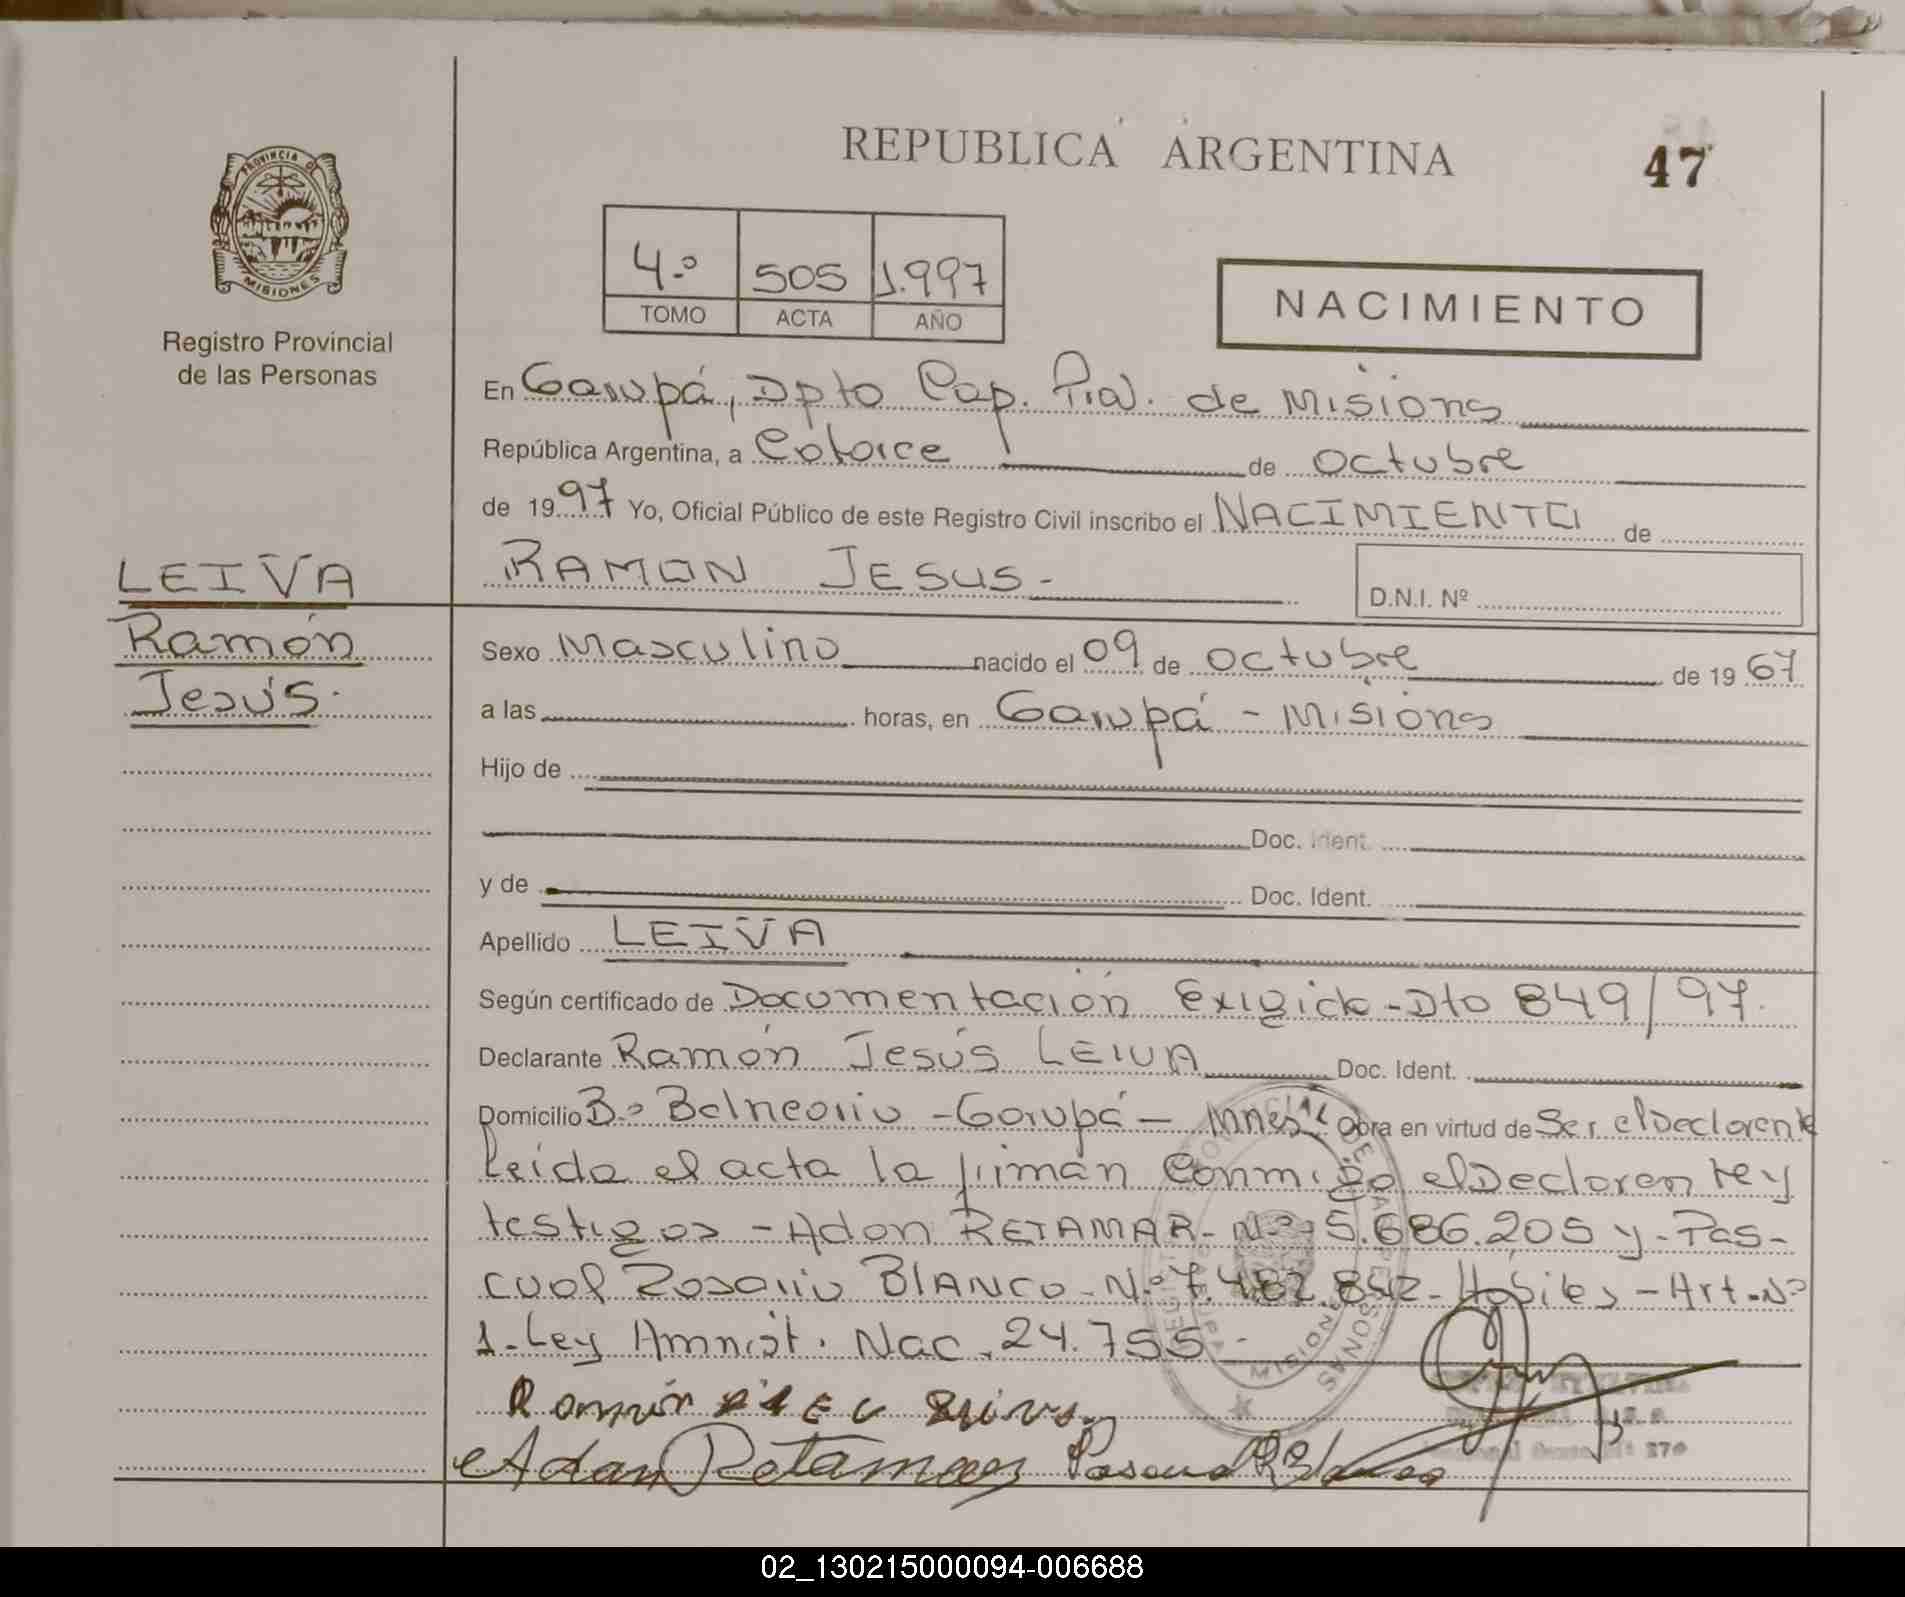 REPUBLICA ARGENTINA
47
PROVINCIA DE
MISIONES
Registro Provincial
de las Personas
4.º 505 1.997
TOMO ACTA AÑO
NACIMIENTO
En Garupá, Dpto Cap. Pia. de Misiones
República Argentina, a Catorce de octubre
de 1997 Yo, Oficial Público de este Registro Civil inscribo el NACIMIENTO de
RAMON JESUS.-
D.N.I. Nº
LEIVA
Ramón
Jesús.
Sexo Masculino nacido el 09 de octubre de 1967
a las horas, en Garupá - Misiones
Hijo de
Doc. Ident.
y de Doc. Ident.
Apellido LEIVA
Según certificado de Documentación Exigida - Dto 849/97.
Declarante Ramón Jesús LEIVA Doc. Ident.
Domicilio B.º Balneario - Garupá - Mnes. Obra en virtud de Ser el Declarante
Leída el acta la firman Conmigo el Declarante y
testigos - Adan RETAMAR - Nº 5.686.205 y - Pas-
cual Rosario BLANCO - Nº 7.482.842 - Hábiles - Art. Nº
1 - Ley Amnist. Nac. 24.755 -
Ramón
Adan Retamar Pascual R Blanco
02_130215000094-006688